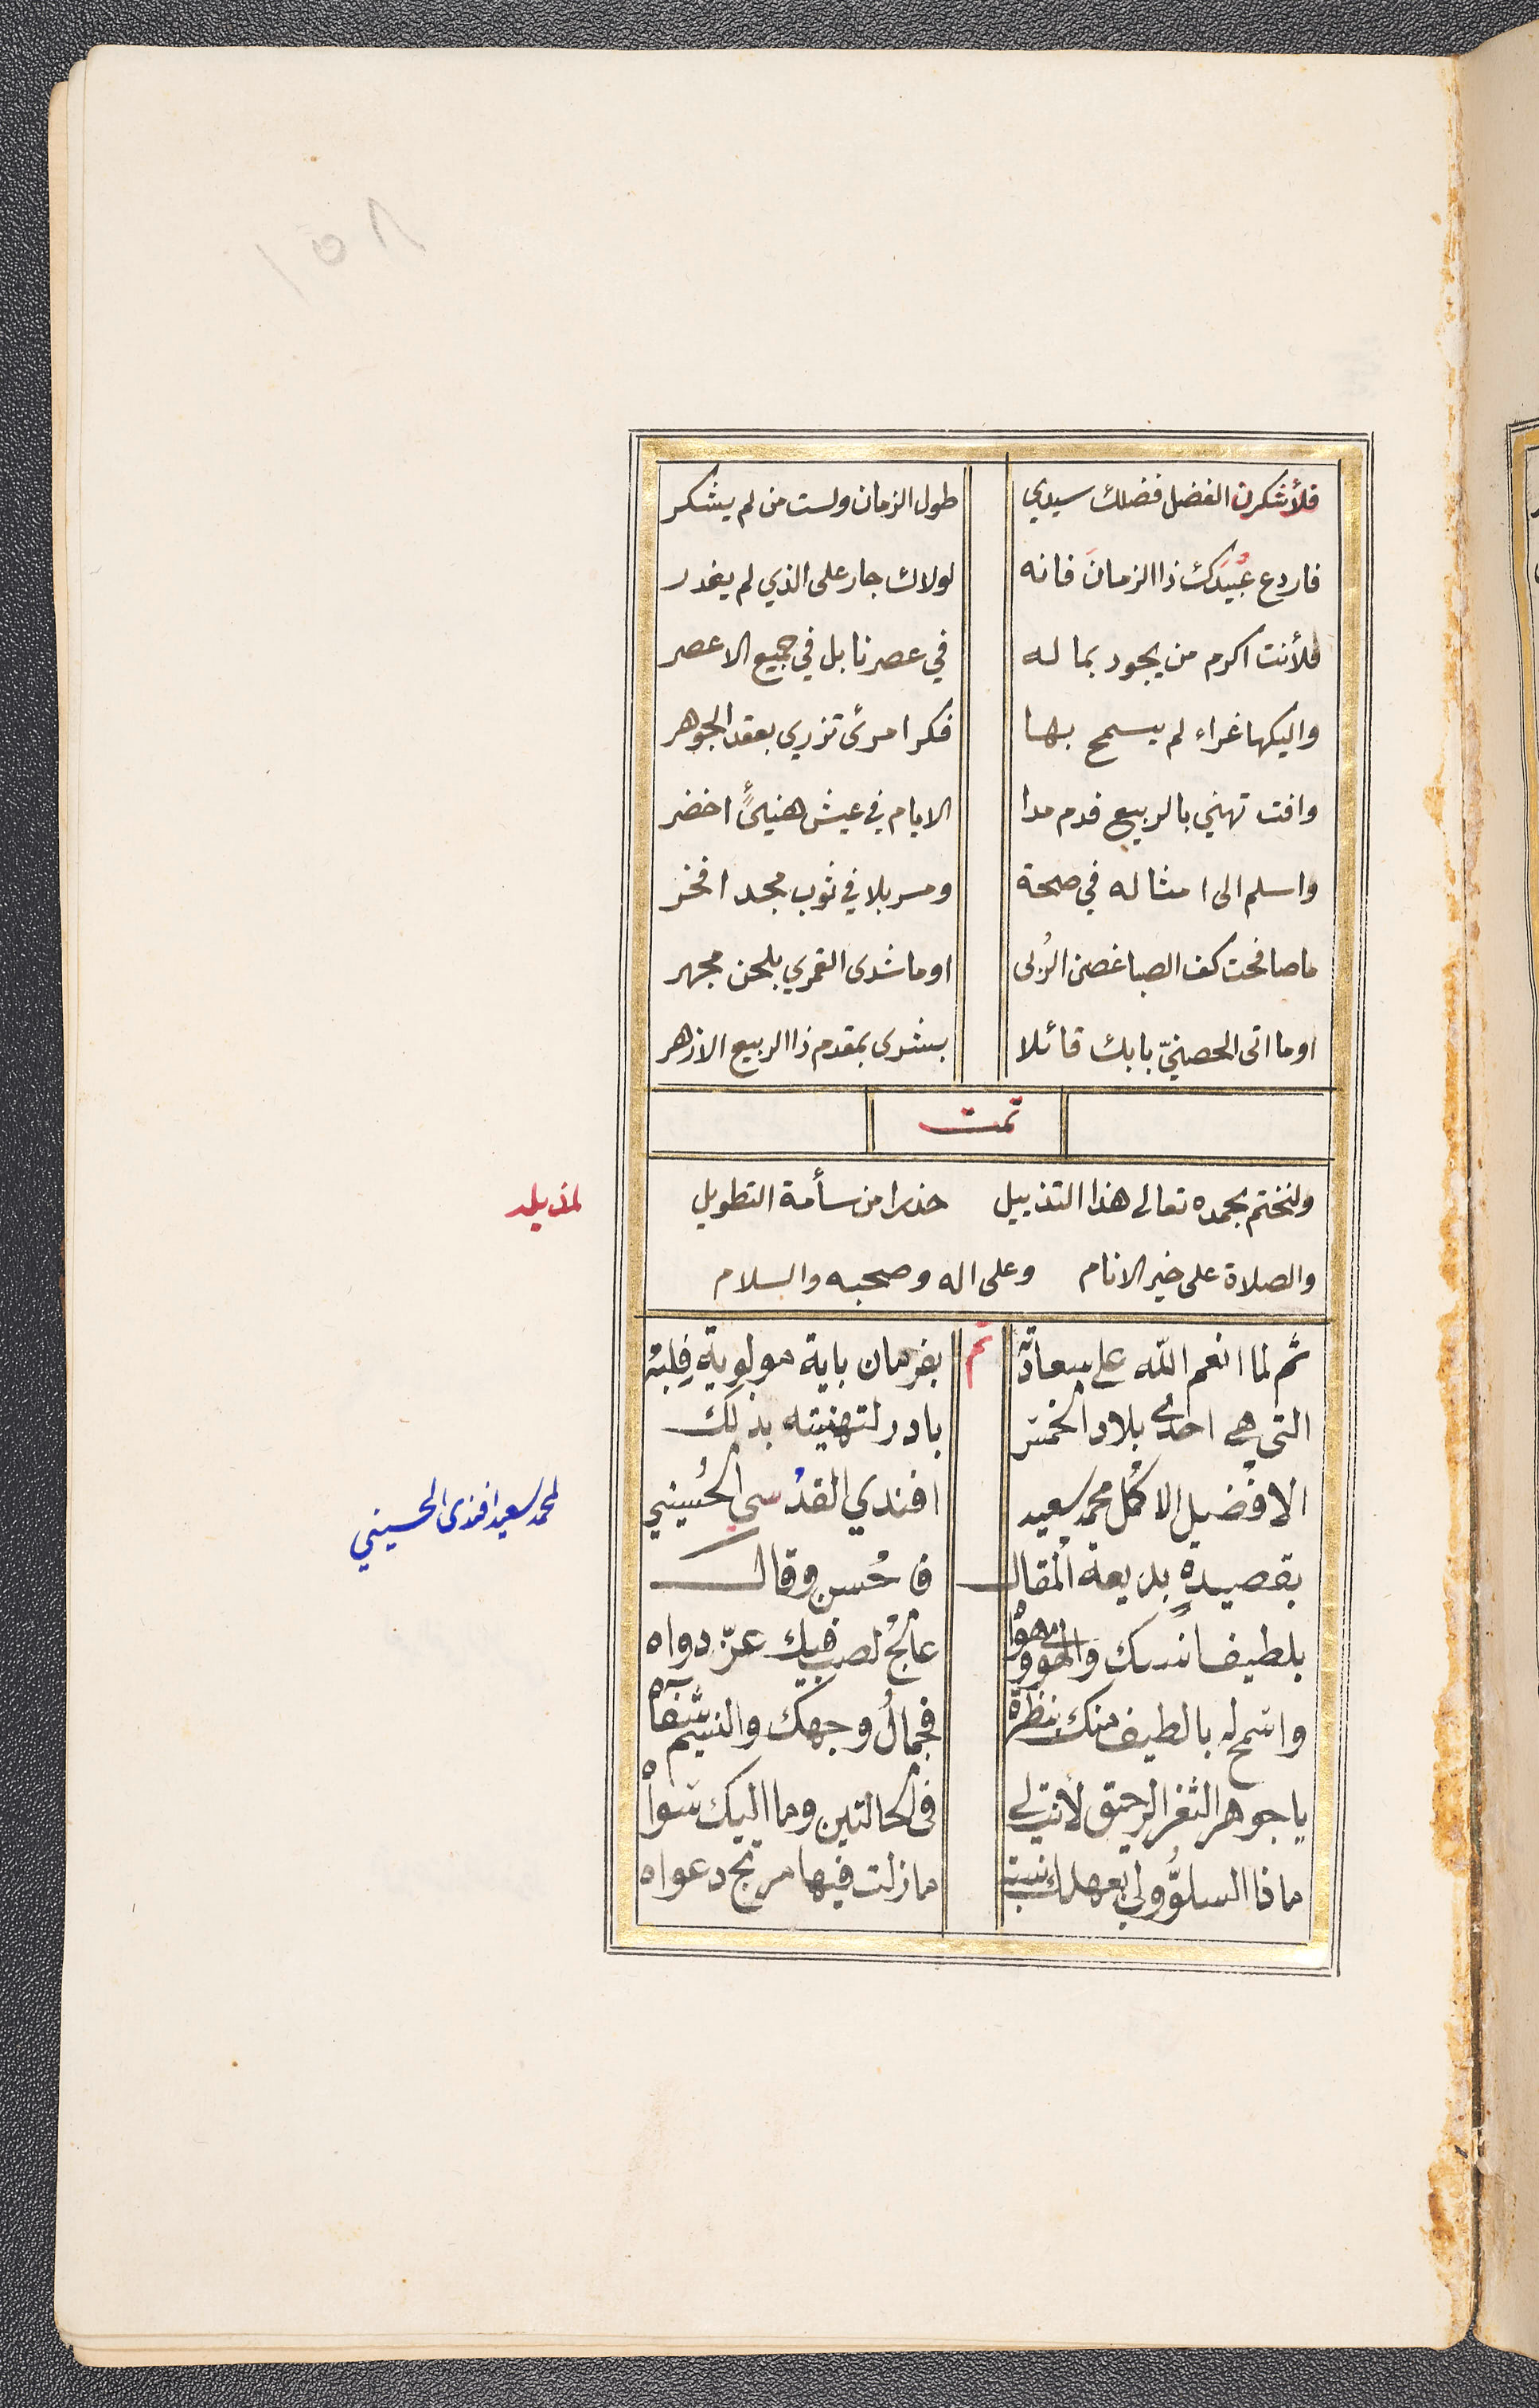 ١٥٨
فلأشكرن الفضل فضلك سيدي طول الزمان ولست من لم يشكر
فاردع عُبَيدَك ذا الزمانَ فانه لولاك جار على الذي لم يغدر
فلأنت اكرم من يجود بماله في عصرنا بل في جميع الاعصر
واليكها غراء لم يسمح بها فكر امرئ تزري بعقد الجوهر
وافت تهني بالربيع فدم مدا الايام في عيش هنيئٍ اخضر
واسلم الى امثاله في صحة ومسربلا في ثوب مجد افخر
ما صافحت كف الصبا غصن الرُبى او ما شدى القمري بلحن مجهر
او ما اتى الحصنيّ بابك قائلا بشرى بمقدم ذا الربيع الازهر
تمت
ولنختم بحمده تعالى هذا التذييل حذرا من سأمة التطويل
لمذيله
والصلاة على خير الانام وعلى اله وصحبه والسلام
ثم لما انعم الله على سعادة تم بفرمان باية مولوية فِلِبَه
التي هي احدى بلاد الخمس بادر لتهنيته بذلك
الافضيل الاكمل محمد سعيد افندي القدُسي الحُسيني
لمحمد سعيد افندى الحسيني
بقصيدةٍ بديعة المقال فاحُسن وقال
بلطيف انسك عالج لصب فيك عزّ دواه
واسمح له بالطيف منك بنظرة فجمالُ وجهك والنسيم شفآه
يا جوهر الثغر الرحيق لأنت لي في الحالتين وما اليك سواه
ماذا السلوُّ ولي بعهدك نسبة ما زلت فيها مرتج دعواه